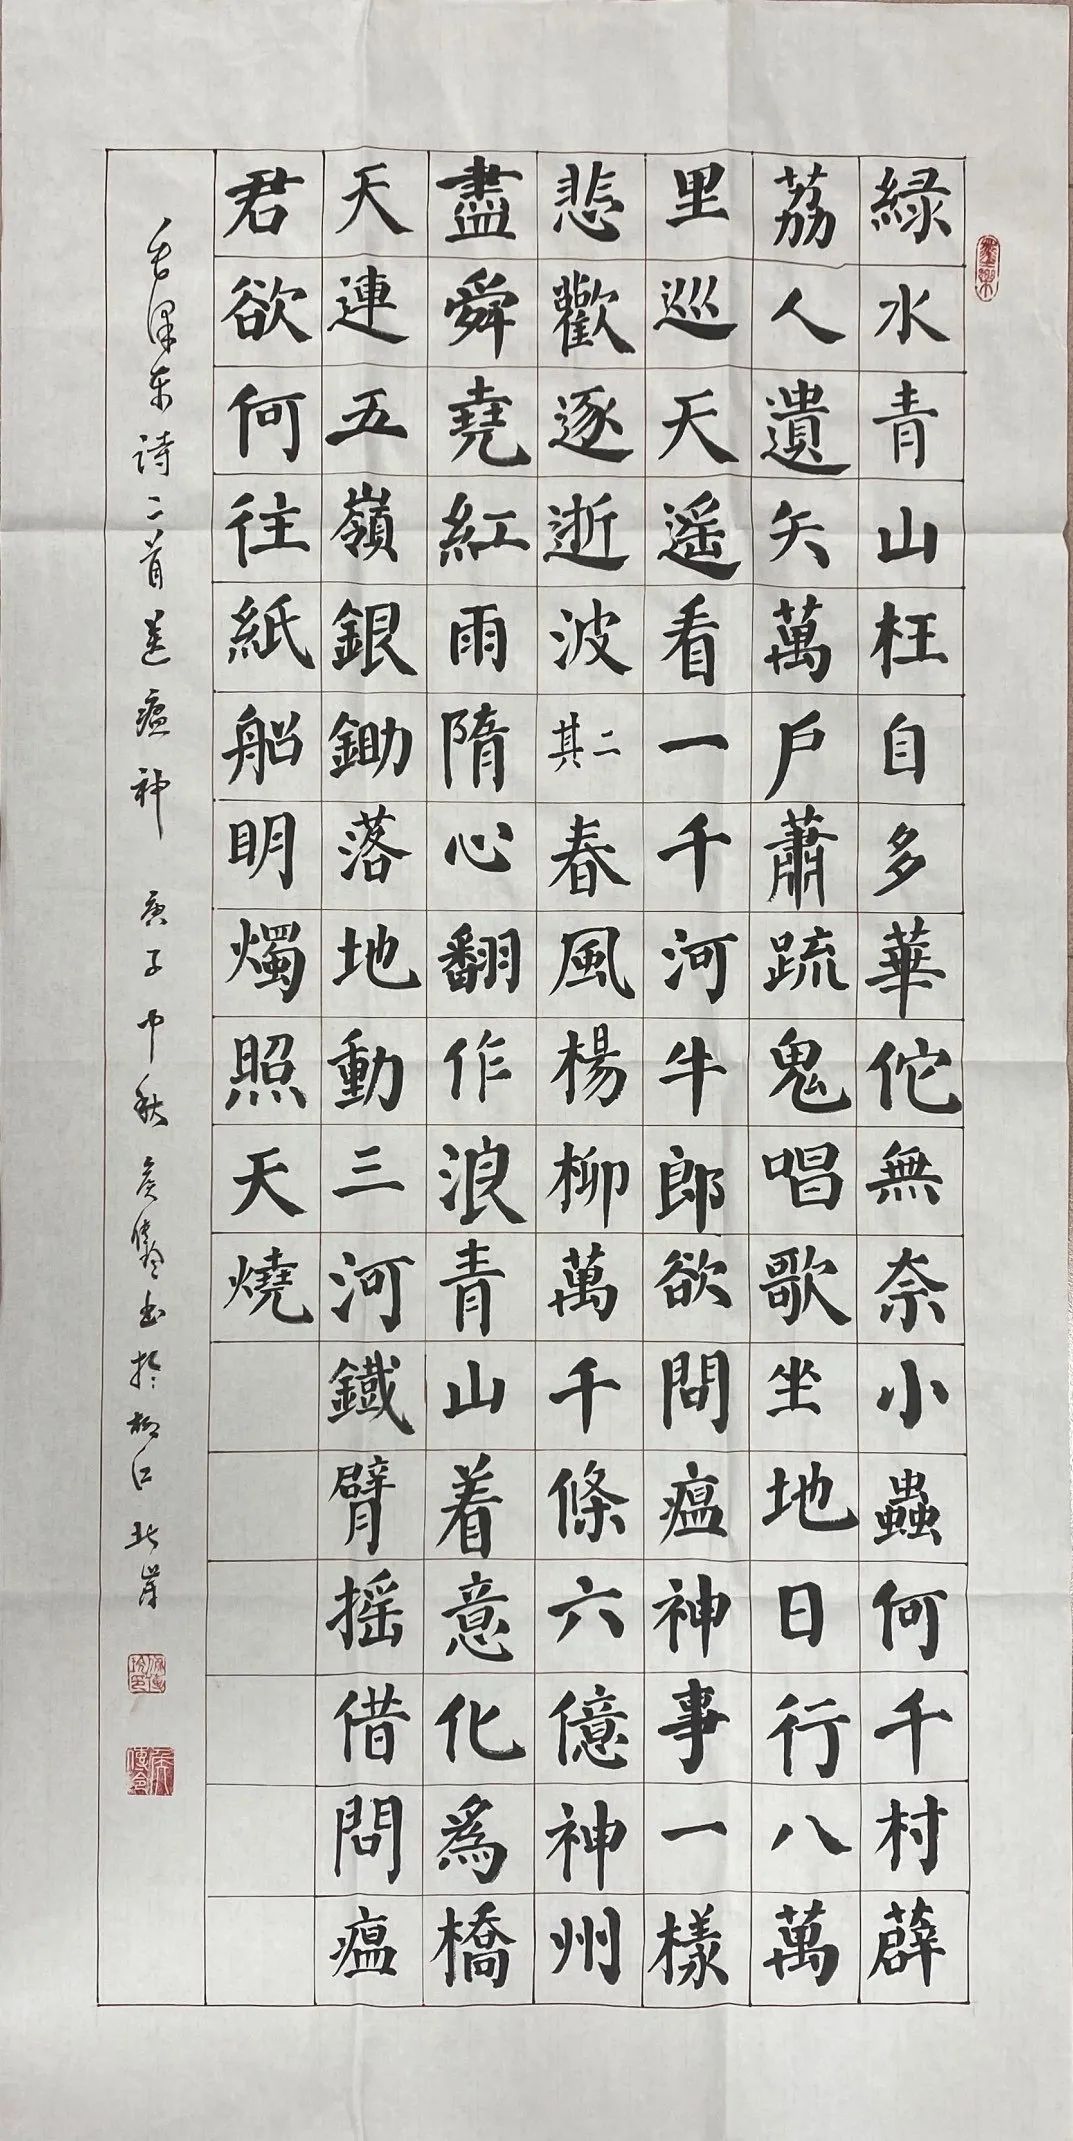 綠水青山枉自多華佗無奈小蟲何千村薜
荔人遺矢萬戶蕭疏鬼唱歌坐地日行八萬
里巡天遥看一千河牛郎欲問瘟神事一樣
悲歡逐逝波其二春風楊柳萬千條六億神州
盡舜堯紅雨隋心翻作浪青山着意化為橋
天連五嶺銀鋤落地動三河鐵臂摇借問瘟
君欲何往紙船明燭照天燒
毛澤东诗二首送瘟神 庚子中秋 侯 书於柳江北岸